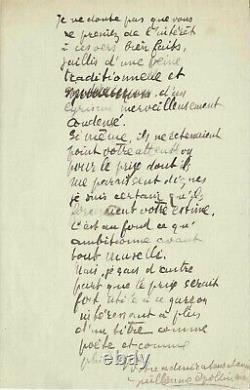 Je ne doute pas que vous
ne preniez de l'intérêt
à ces vers bien faits,
jaillis d'une veine
traditionnelle et
d'un
lyrisme merveilleusement
condensé.
Si même, ils ne retenaient
point votre attention
pour le prix dont ils
me paraissent dignes
je suis certain qu'ils
votre estime.
C'est au fond ce qu'
ambitionne avant
tout
Mais, je sais d'autre
part que le prix serait
fort utile à ce garçon
intéressant à plus
d'un titre comme
poète et comme
Votre admirateur
Guillaume Apollinaire